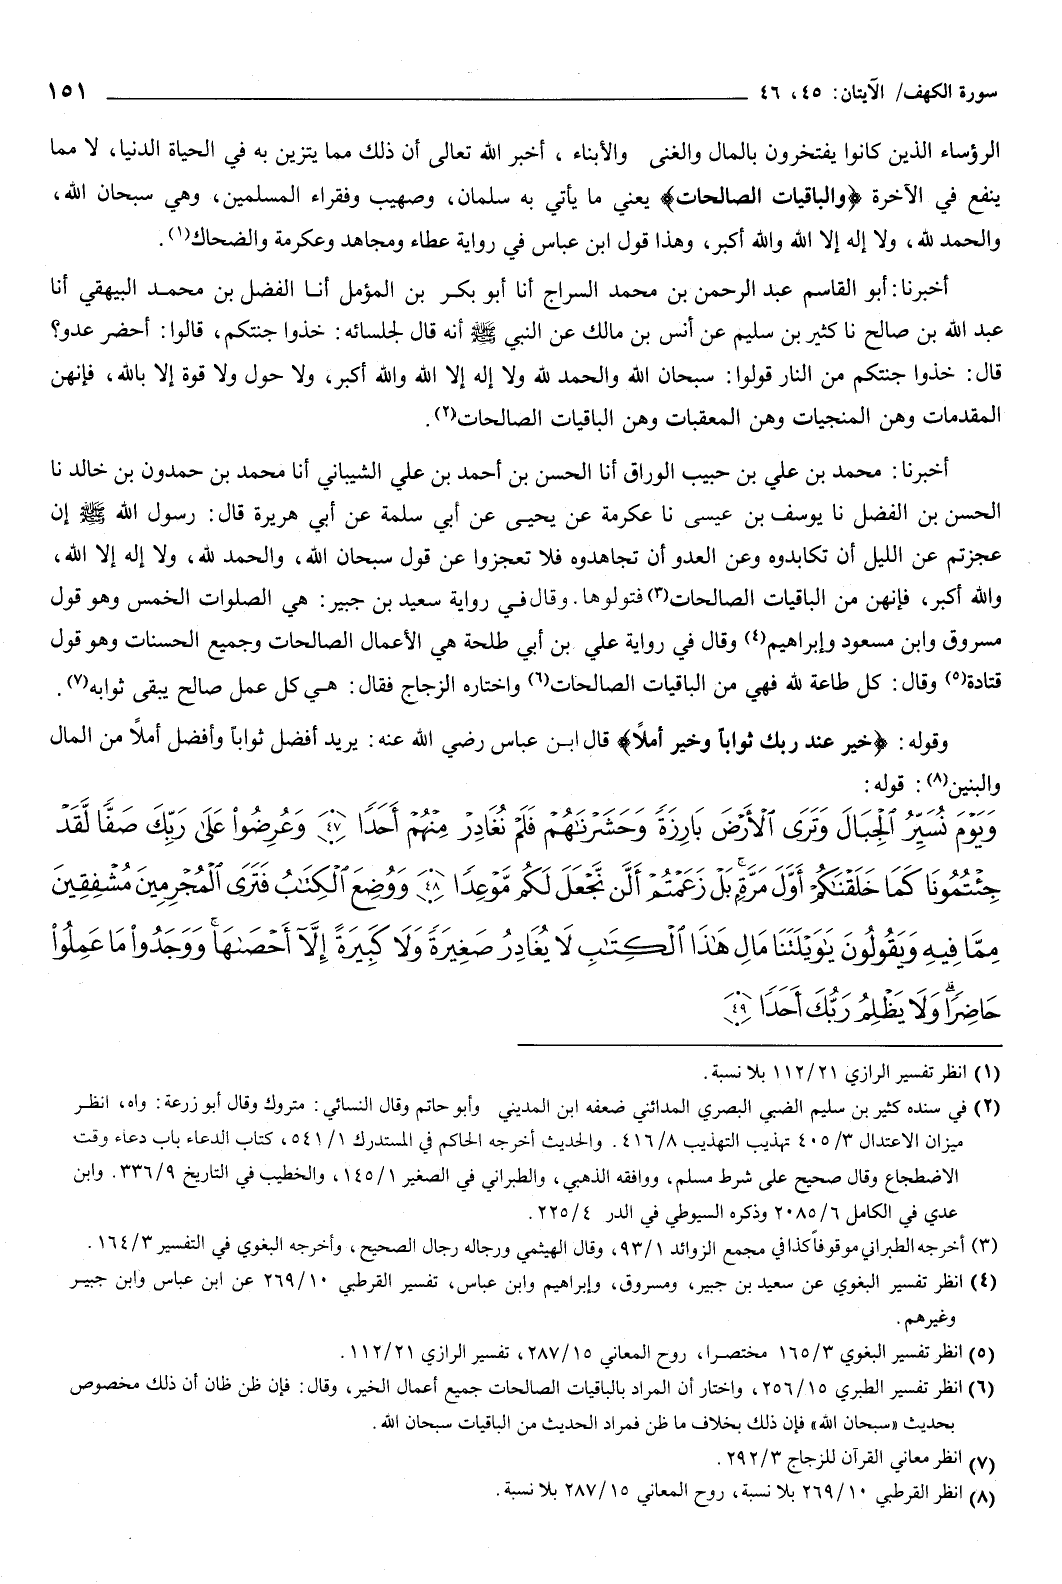 سورة الكهف/ الآيتان: ٤٥، ٤٦ ١٥١
الرؤساء الذين كانوا يفتخرون بالمال والغنى والأبناء ، أخبر الله تعالى أن ذلك مما يتزين به في الحياة الدنيا، لا مما
ينفع في الآخرة ﴿والباقيات الصالحات﴾ يعني ما يأتي به سلمان، وصهيب وفقراء المسلمين، وهي سبحان الله،
والحمد لله، ولا إله إلا الله والله أكبر، وهذا قول ابن عباس في رواية عطاء ومجاهد وعكرمة والضحاك(١).
أخبرنا: أبو القاسم عبد الرحمن بن محمد السراج أنا أبو بكر بن المؤمل أنا الفضل بن محمد البيهقي أنا
عبد الله بن صالح نا كثير بن سليم عن أنس بن مالك عن النبي ﷺ أنه قال لجلسائه: خذوا جنتكم، قالوا: أحضر عدو؟
قال: خذوا جنتكم من النار قولوا: سبحان الله والحمد لله ولا إله إلا الله والله أكبر، ولا حول ولا قوة إلا بالله، فإنهن
المقدمات وهن المنجيات وهن المعقبات وهن الباقيات الصالحات(٢).
أخبرنا: محمد بن علي بن حبيب الوراق أنا الحسن بن أحمد بن علي الشيباني أنا محمد بن حمدون بن خالد نا
الحسن بن الفضل نا يوسف بن عيسى نا عكرمة عن يحيى عن أبي سلمة عن أبي هريرة قال: رسول الله ﷺ إن
عجزتم عن الليل أن تكابدوه وعن العدو أن تجاهدوه فلا تعجزوا عن قول سبحان الله، والحمد لله، ولا إله إلا الله،
والله أكبر، فإنهن من الباقيات الصالحات(٣) فتولوها. وقال في رواية سعيد بن جبير: هي الصلوات الخمس وهو قول
مسروق وابن مسعود وإبراهيم(٤) وقال في رواية علي بن أبي طلحة هي الأعمال الصالحات وجميع الحسنات وهو قول
قتادة(٥) وقال: كل طاعة لله فهي من الباقيات الصالحات(٦) واختاره الزجاج فقال: هي كل عمل صالح يبقى ثوابه(٧).
وقوله: ﴿خير عند ربك ثواباً وخير أملاً﴾ قال ابن عباس رضي الله عنه: يريد أفضل ثواباً وأفضل أملاً من المال
والبنين(٨): قوله:
وَيَوْمَ نُسَيِّرُ الْجِبَالَ وَتَرَى الْأَرْضَ بَارِزَةً وَحَشَرْنَاهُمْ فَلَمْ نُغَادِرْ مِنْهُمْ أَحَدًا ٤٧ وَعُرِضُوا عَلَىٰ رَبِّكَ صَفًّا لَّقَدْ
جِئْتُمُونَا كَمَا خَلَقْنَاكُمْ أَوَّلَ مَرَّةٍ ۚ بَلْ زَعَمْتُمْ أَلَّن نَّجْعَلَ لَكُم مَّوْعِدًا ٤٨ وَوُضِعَ الْكِتَابُ فَتَرَى الْمُجْرِمِينَ مُشْفِقِينَ
مِمَّا فِيهِ وَيَقُولُونَ يَاوَيْلَتَنَا مَالِ هَٰذَا الْكِتَابِ لَا يُغَادِرُ صَغِيرَةً وَلَا كَبِيرَةً إِلَّا أَحْصَاهَا ۚ وَوَجَدُوا مَا عَمِلُوا
حَاضِرًا ۗ وَلَا يَظْلِمُ رَبُّكَ أَحَدًا ٤٩
(١) انظر تفسير الرازي ١١٢/٢١ بلا نسبة.
(٢) في سنده كثير بن سليم الضبي البصري المدائني ضعفه ابن المديني وأبو حاتم وقال النسائي: متروك وقال أبو زرعة: واه، انظر
ميزان الاعتدال ٤٠٥/٣ تهذيب التهذيب ٤١٦/٨. والحديث أخرجه الحاكم في المستدرك ٥٤١/١، كتاب الدعاء باب دعاء وقت
الاضطجاع وقال صحيح على شرط مسلم، ووافقه الذهبي، والطبراني في الصغير ١٤٥/١، والخطيب في التاريخ ٣٣٦/٩. وابن
عدي في الكامل ٢٠٨٥/٦ وذكره السيوطي في الدر ٢٢٥/٤.
(٣) أخرجه الطبراني موقوفاً كذا في مجمع الزوائد ٩٣/١، وقال الهيثمي ورجاله رجال الصحيح، وأخرجه البغوي في التفسير ١٦٤/٣.
(٤) انظر تفسير البغوي عن سعيد بن جبير، ومسروق، وإبراهيم وابن عباس، تفسير القرطبي ٢٦٩/١٠ عن ابن عباس وابن جبير
وغيرهم.
(٥) انظر تفسير البغوي ١٦٥/٣ مختصرا، روح المعاني ٢٨٧/١٥، تفسير الرازي ١١٢/٢١.
(٦) انظر تفسير الطبري ٢٥٦/١٥، واختار أن المراد بالباقيات الصالحات جميع أعمال الخير، وقال: فإن ظن ظان أن ذلك مخصوص
بحديث «سبحان الله» فإن ذلك بخلاف ما ظن فمراد الحديث من الباقيات سبحان الله.
(٧) انظر معاني القرآن للزجاج ٢٩٢/٣.
(٨) انظر القرطبي ٢٦٩/١٠ بلا نسبة، روح المعاني ٢٨٧/١٥ بلا نسبة.